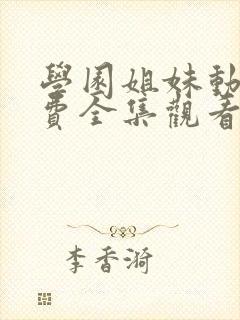 學園姐妹動
費全集觀看
李香漪